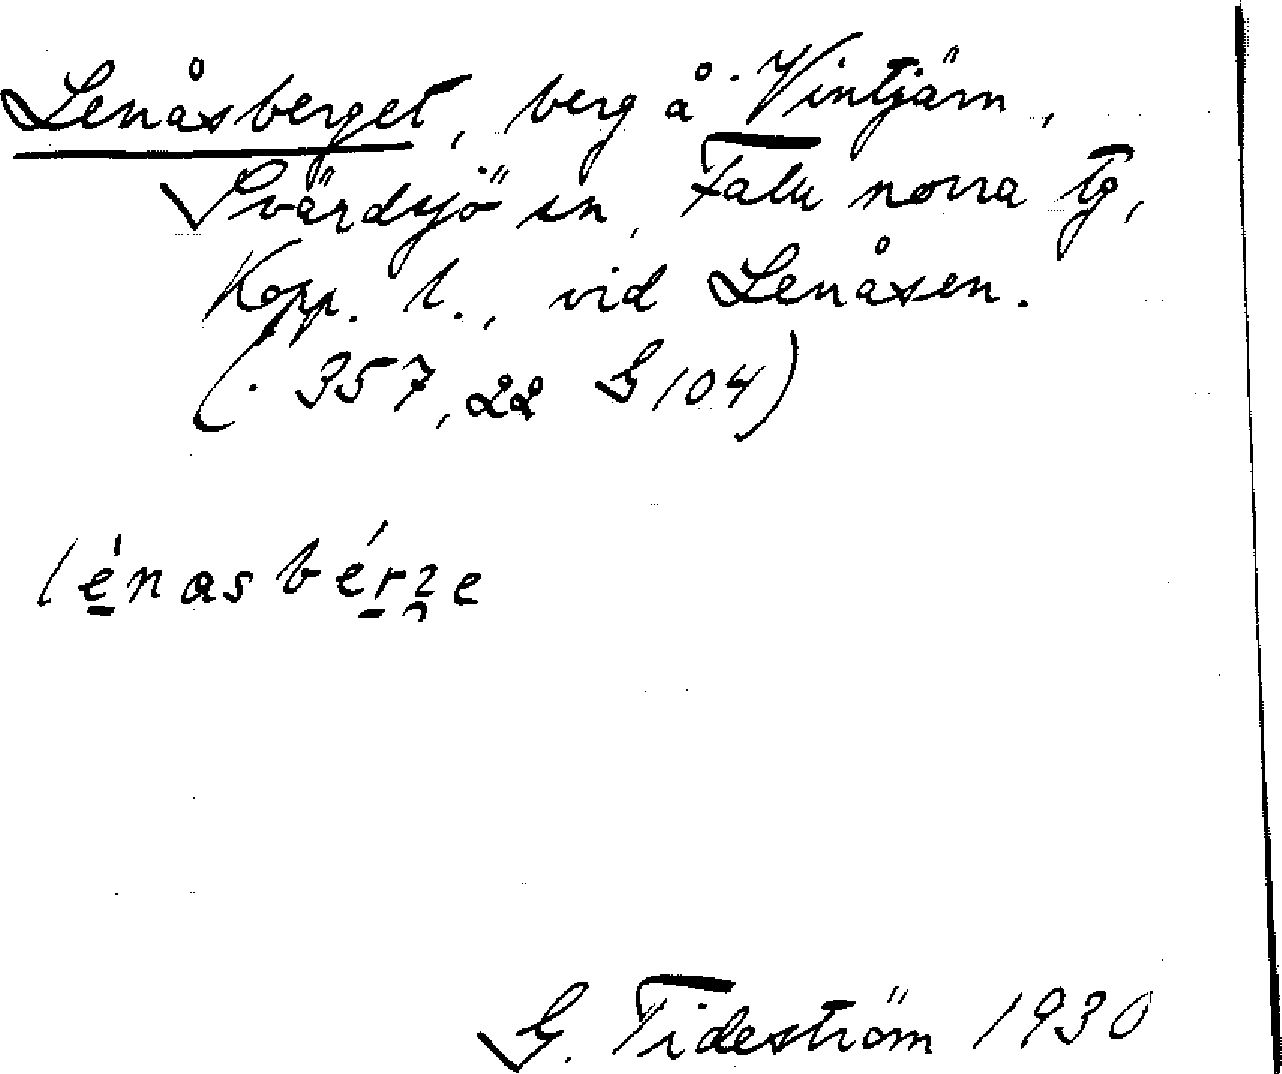 Lenåsberget, berg å Vintjärn,
Svärdsjö sn, Falu norra tg,
Kopp. l., vid Lenåsen.
(. 357, 22 G 104)
lénasbérʒe
G. Tideström 1930